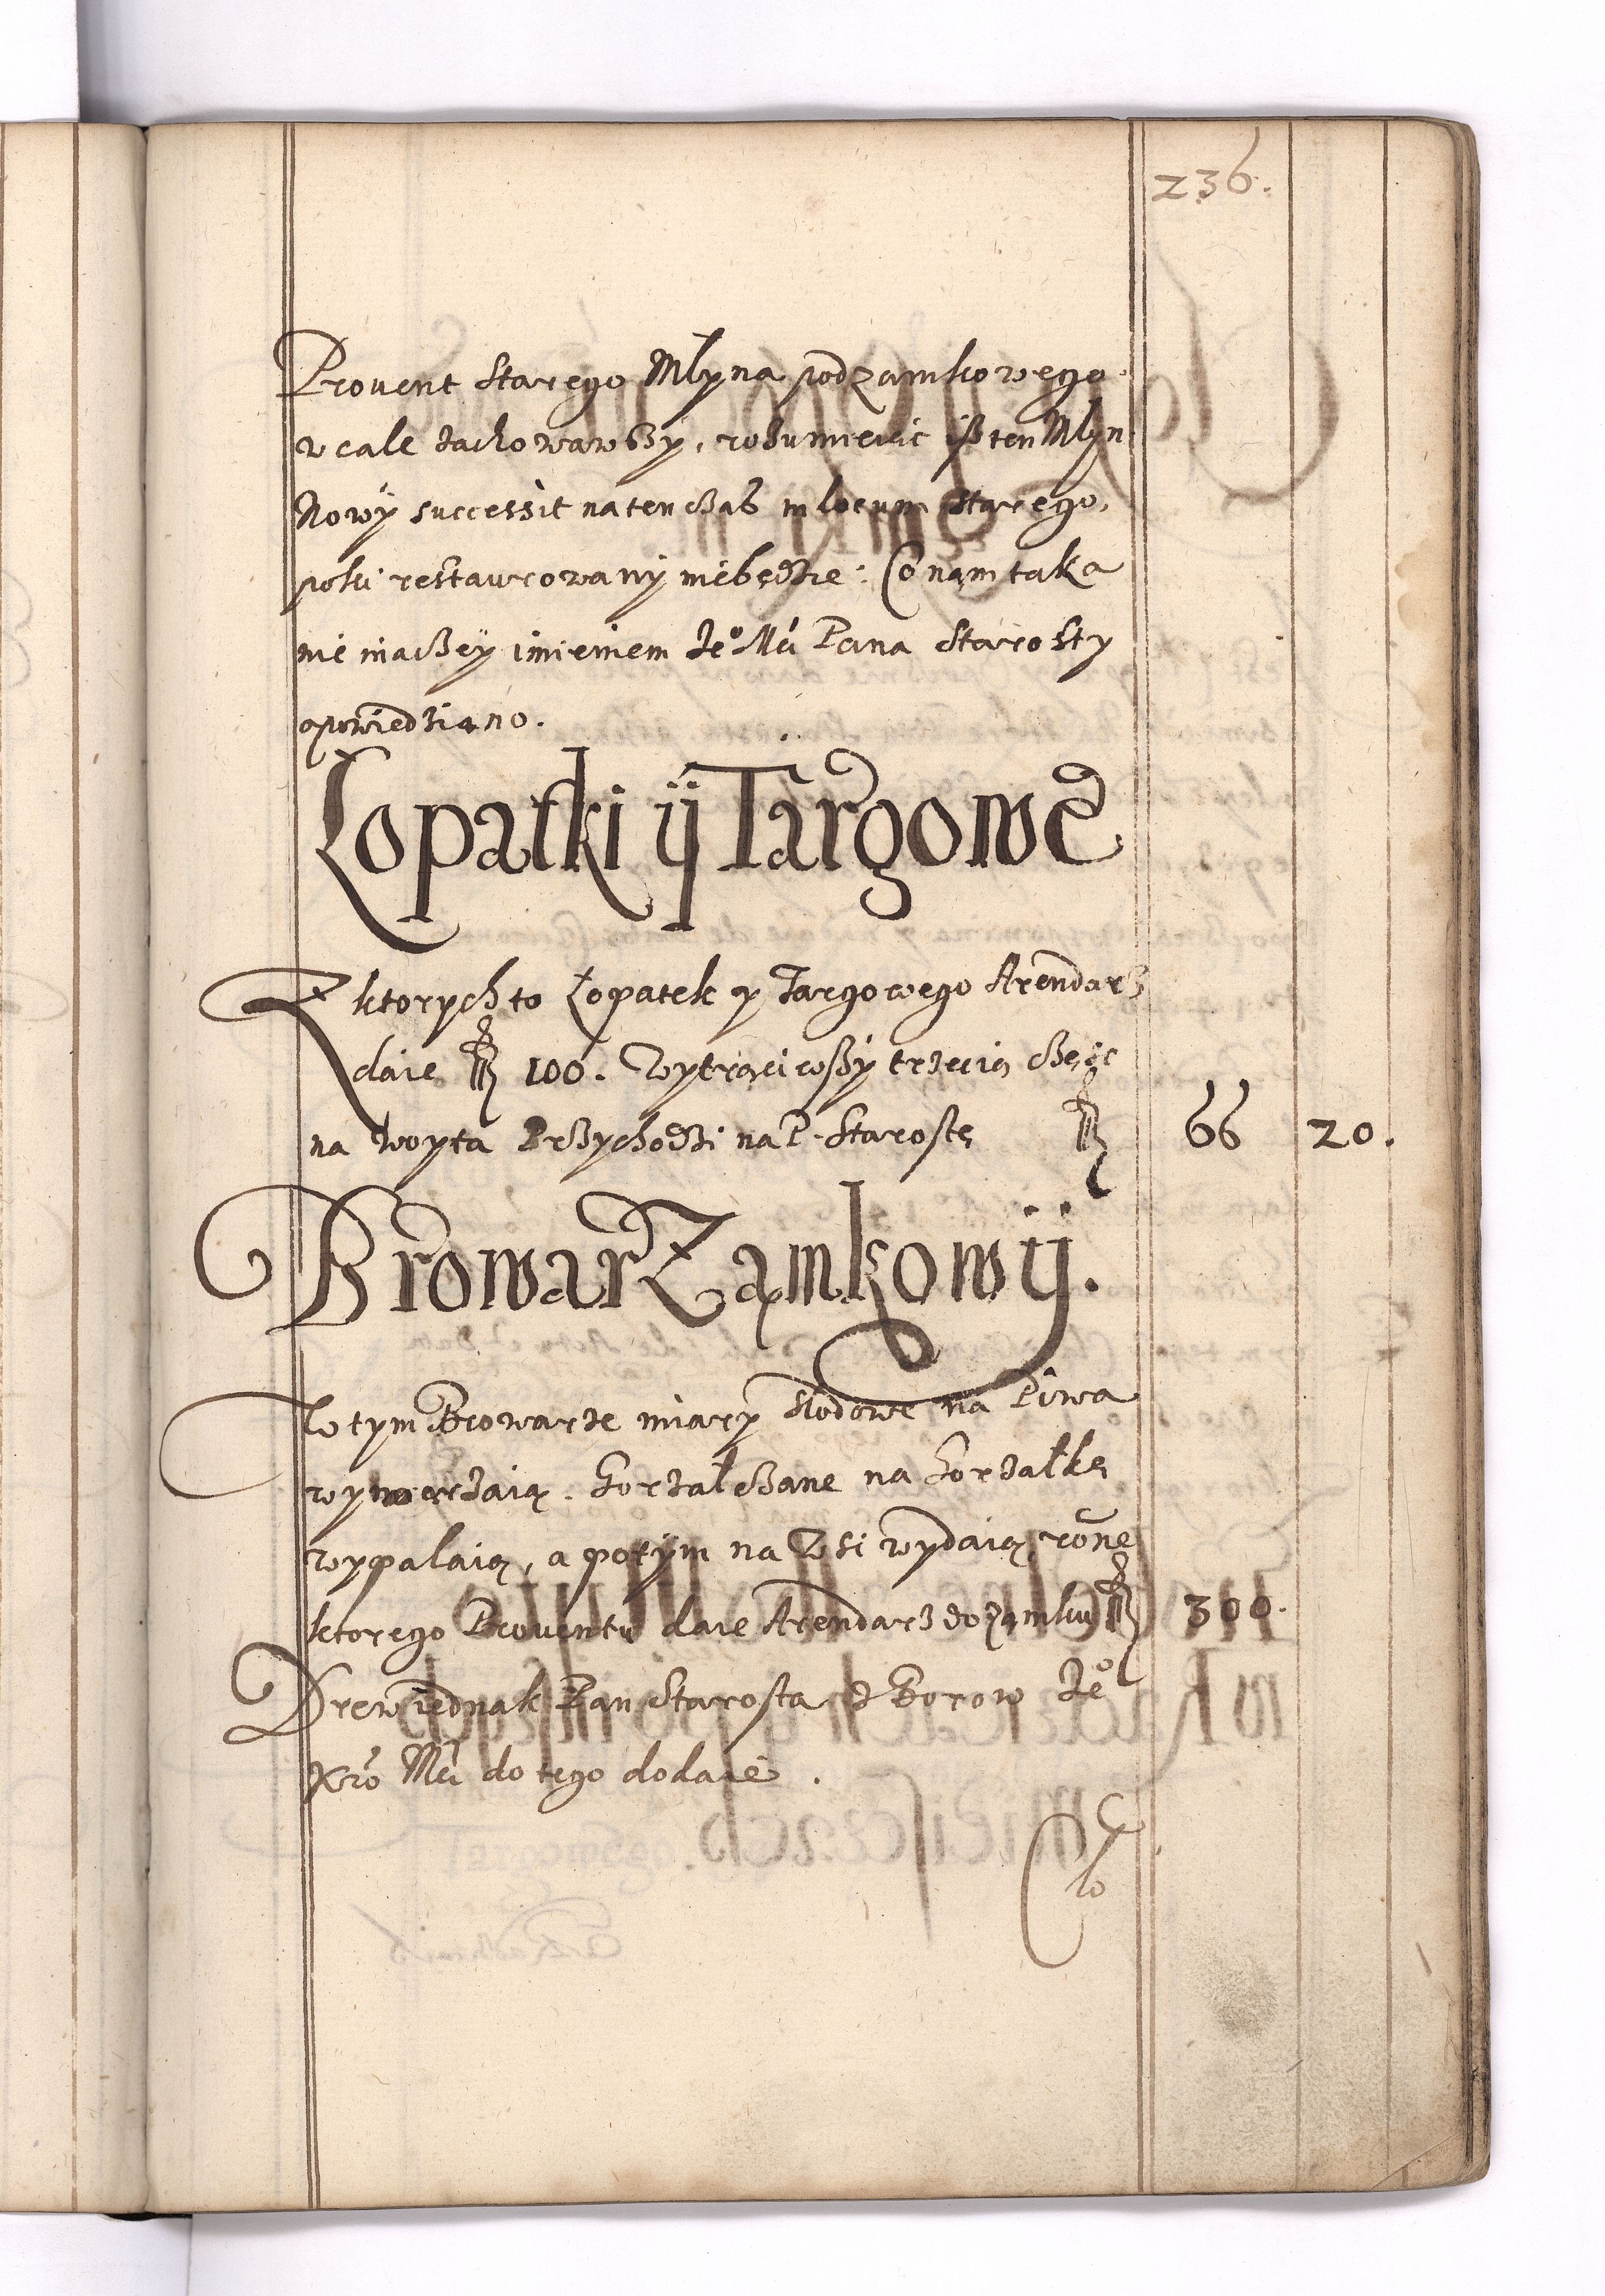 236.
Provent Starego Młyna podzamkowego
w cale zachowawszy, rozumieiąc isz ten Młyn
Nowÿ successit na ten czas in locum Starego,
poki restaurowanÿ niebędzie: Co nam taka
nie inaczeÿ imieniem Jeº Mći Pana Starosty
opowiedziano.
Łopatki ÿ Targowe
Z ktorych to Łopatek y Targowego Arendarz
daie fl 100. Wytrąciwszÿ trzecią częśc
na Woyta Przychodzi na P. Starostę fl 66 20.
Browar Zamkowÿ.
W tym Browarze miarÿ Słodowe na Piwa
wymierzaią. Gorzałczane na Gorzałkę
wypalaią, a potÿm na Wsi wydaią,
ktorego Proventu daie Arendarz do Zamku fl 300.
Drew iednak Pan Starosta z Borow Jeº
Kro Mći do tego dodaie.
Cło